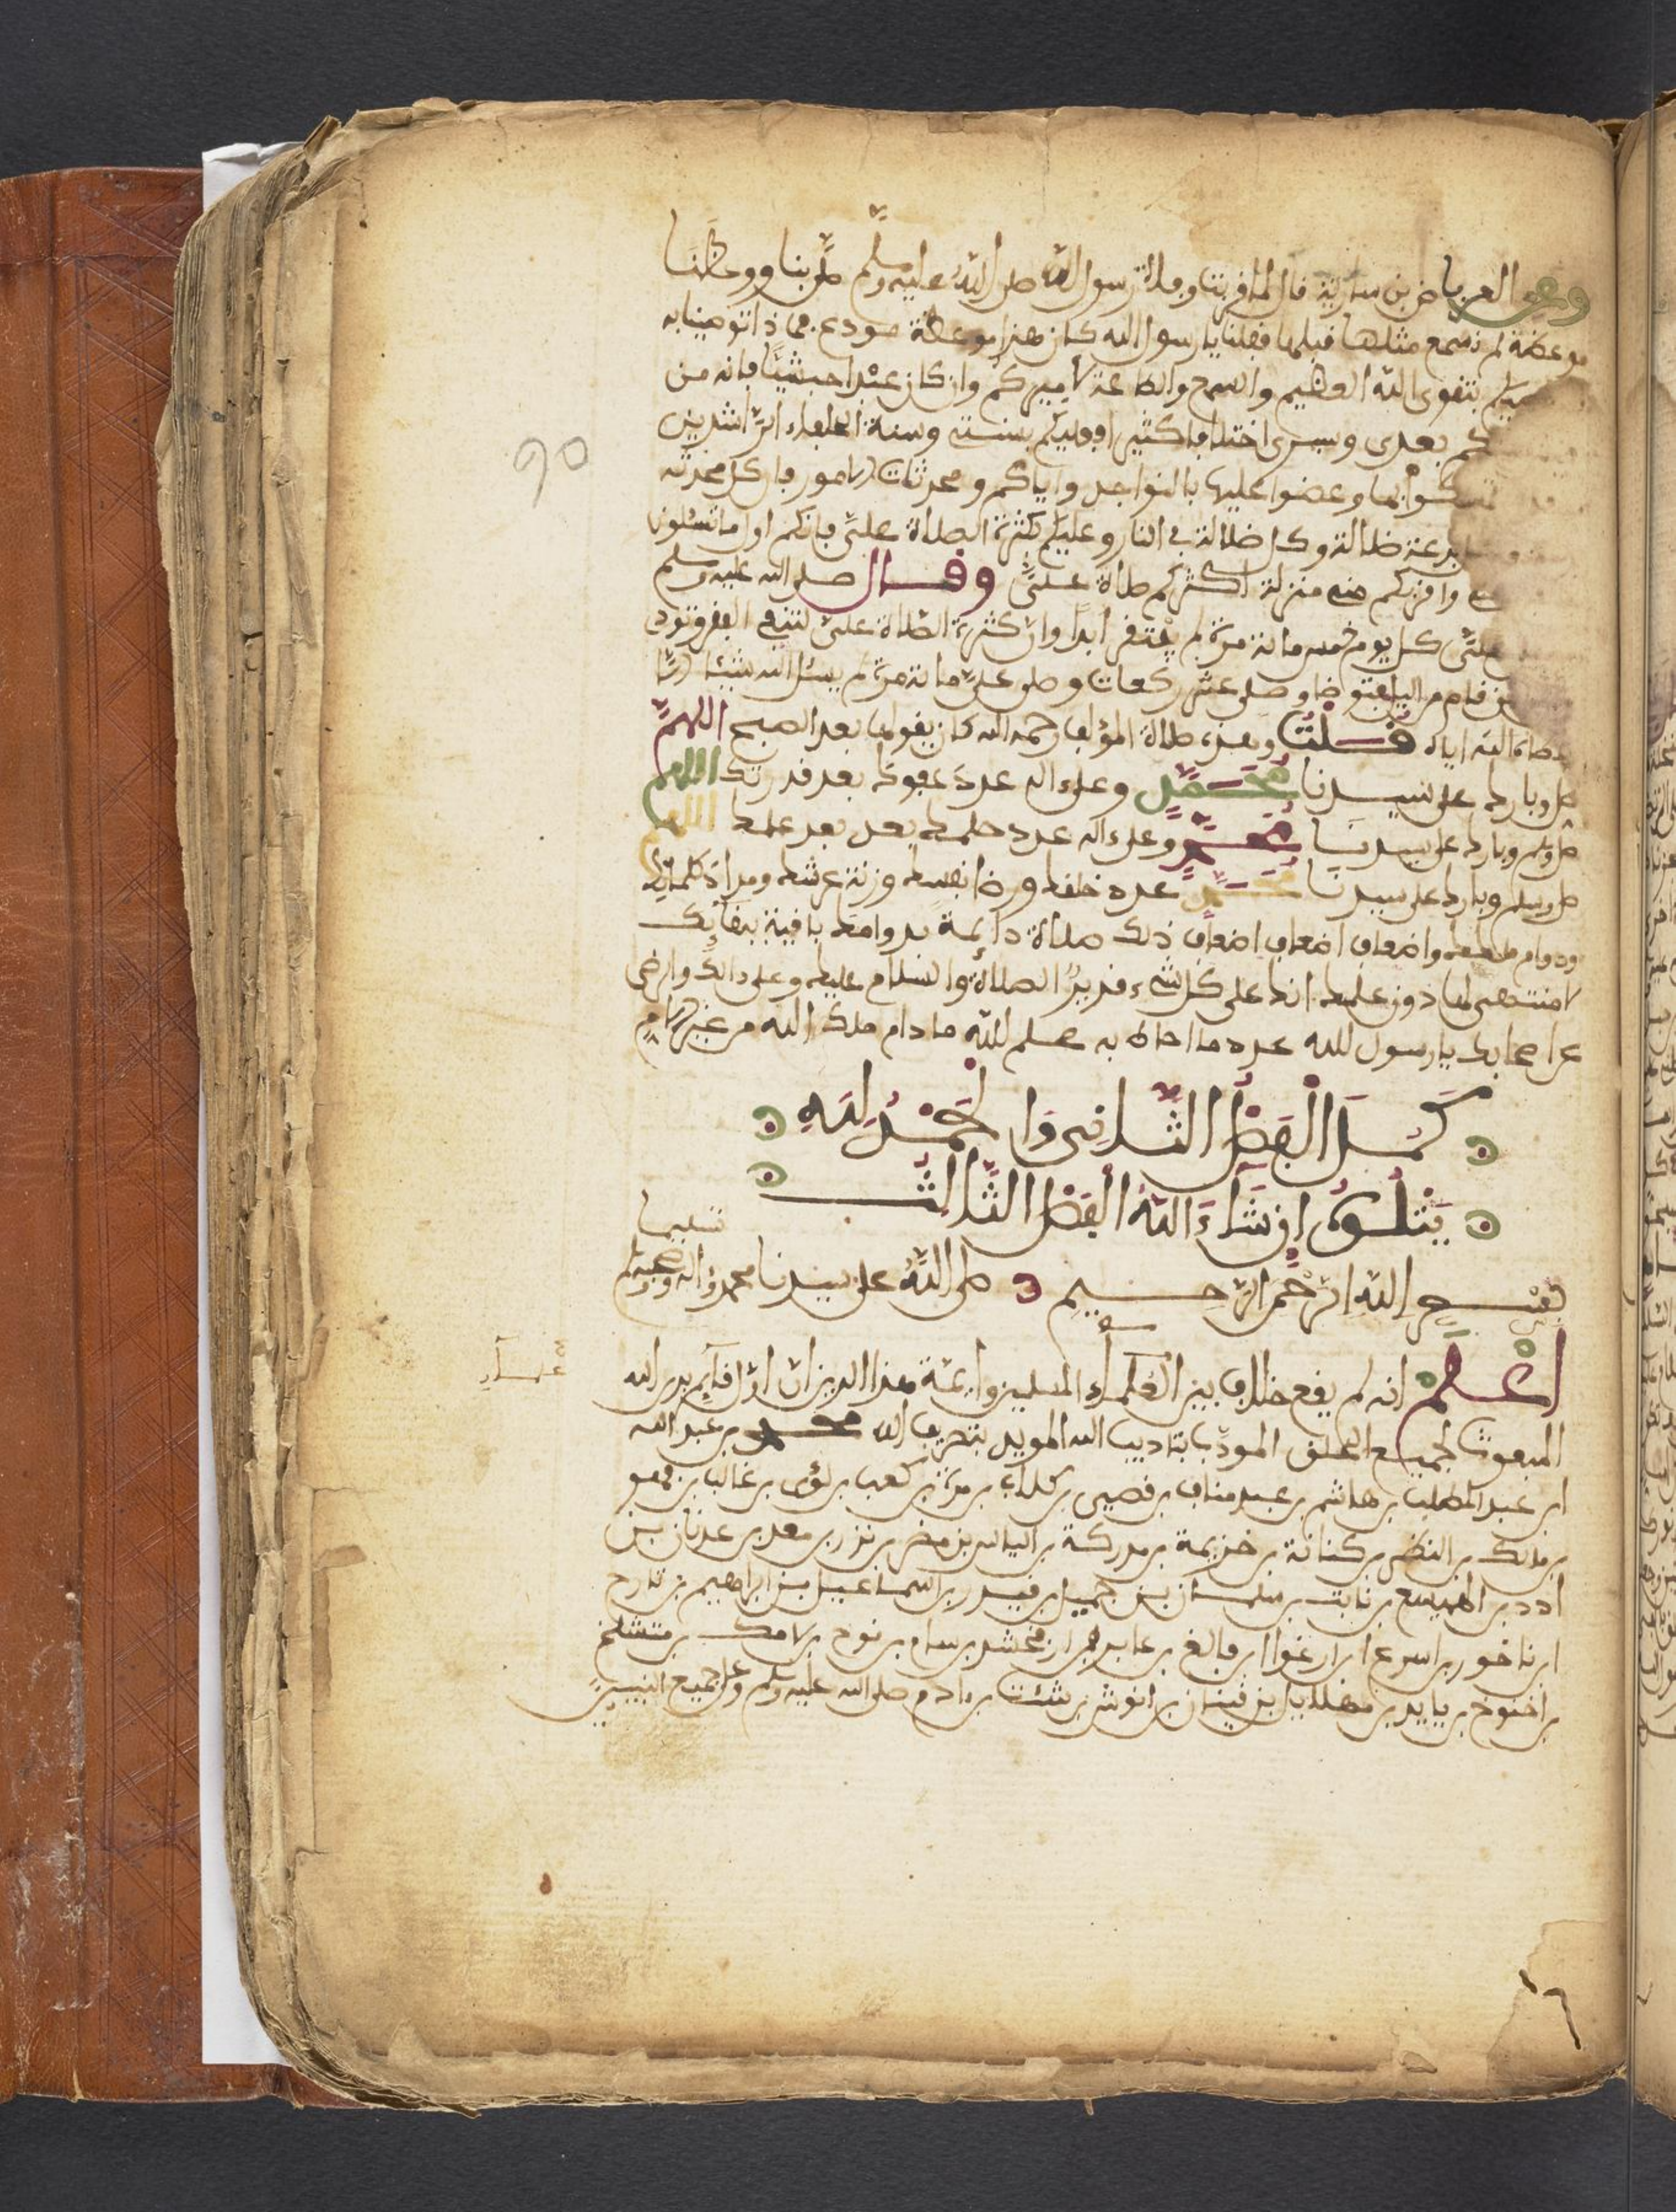 وعن العرباض بن سارية قال لما قربت وفاة رسول الله صلى الله عليه وسلم صلى بنا ووعظنا
موعظة لم نسمع مثلها قبلها فقلنا يا رسول الله كان هذا موعظة مودع فماذا توصينا به
بتقوى الله العظيم والسمع والطاعة لأميركم وان كان عبدا حبشيا فانه من
بعدى وسيرى اختلافا كثيرا فعليكم بسنتى وسنة الخلفاء الراشدين
بها وعضوا عليها بالنواجد واياكم ومحدثات الامور فان كل محدثة
بدعة ضلالة وكل ضلالة في النار وعليكم بكثرة الصلاة علىّ فانكم اول ما تسئلون
واقربكم منى منزلة اكثركم صلاة علىّ وقال صلى الله عليه وسلم
علىّ كل يوم خمس مائة مرة لم يفتقر ابدا وان كثرة الصلاة علىّ لتنفى الفقر
قام من اليل فتوضا وصلى عشر ركعات وصلى علىّ مائة مرة لم يسئل الله شيئا الا
اعطاه الله اياه قلت وهذه صلاة المؤلف رحمه الله كان يقولها بعد الصبح اللهم
صل وبارك على سيدنا محمد وعلى اله عدد عفوك بعد قدرتك اللهم
صل وسلم وبارك على سيدنا محمد وعلى اله عدد حلمك بعد علمك اللهم
صل وسلم وبارك على سيدنا محمد عدد خلقك ورضا نفسك وزنة عرشك ومداد كلماتك
ودوام ملكك واضعاف اضعاف اضعاف ذلك صلاة دايمة بدوامك باقية ببقايك
لا منتهى لها دون علمك انك على كل شىء قدير الصلاة والسلام عليك وعلى ءالك وارضى
عن اصحابك يا رسول الله عدد ما احاط به علم الله ما دام ملك الله من غير
كمل الفصل الثانى والحمد لله
يتلوه ان شاء الله الفصل الثالث
بسم الله الرحمن الرحيم صلى الله على سيدنا محمد واله وصحبه وسلم تسليما
اعلم انه لم يقع خلاف بين العلماء المسلمين وايمة هذا الدين ان القايم بدين الله
المبعوث لجميع الخلق المودب بتاديب الله المويد بتعريف الله محمد بن عبد الله
ابن عبد المطلب بن هاشم بن عبد مناف بن قصي بن كلاب بن مرة بن كعب بن لؤى بن غالب بن فهر
بن مالك بن النضر بن كنانة بن خزيمة بن مدركة بن الياس بن مضر بن نزر بن معد بن عدنان بن
ادد بن الهميسع بن نابت بن سلمان بن حميل بن قيدر بن اسماعيل بن ابراهيم بن تارح
ابن ناخور بن اسرع ابن ارغوا بن فالغ بن عابر بن ارفخشد بن سام بن نوح بن لامك بن متشلخ
بن اخنوخ بن يايد بن مهلاييل بن قينان بن انوش بن شئت بن ءادم صلى الله عليه وسلم وعلى جميع النبيين
90
١٦